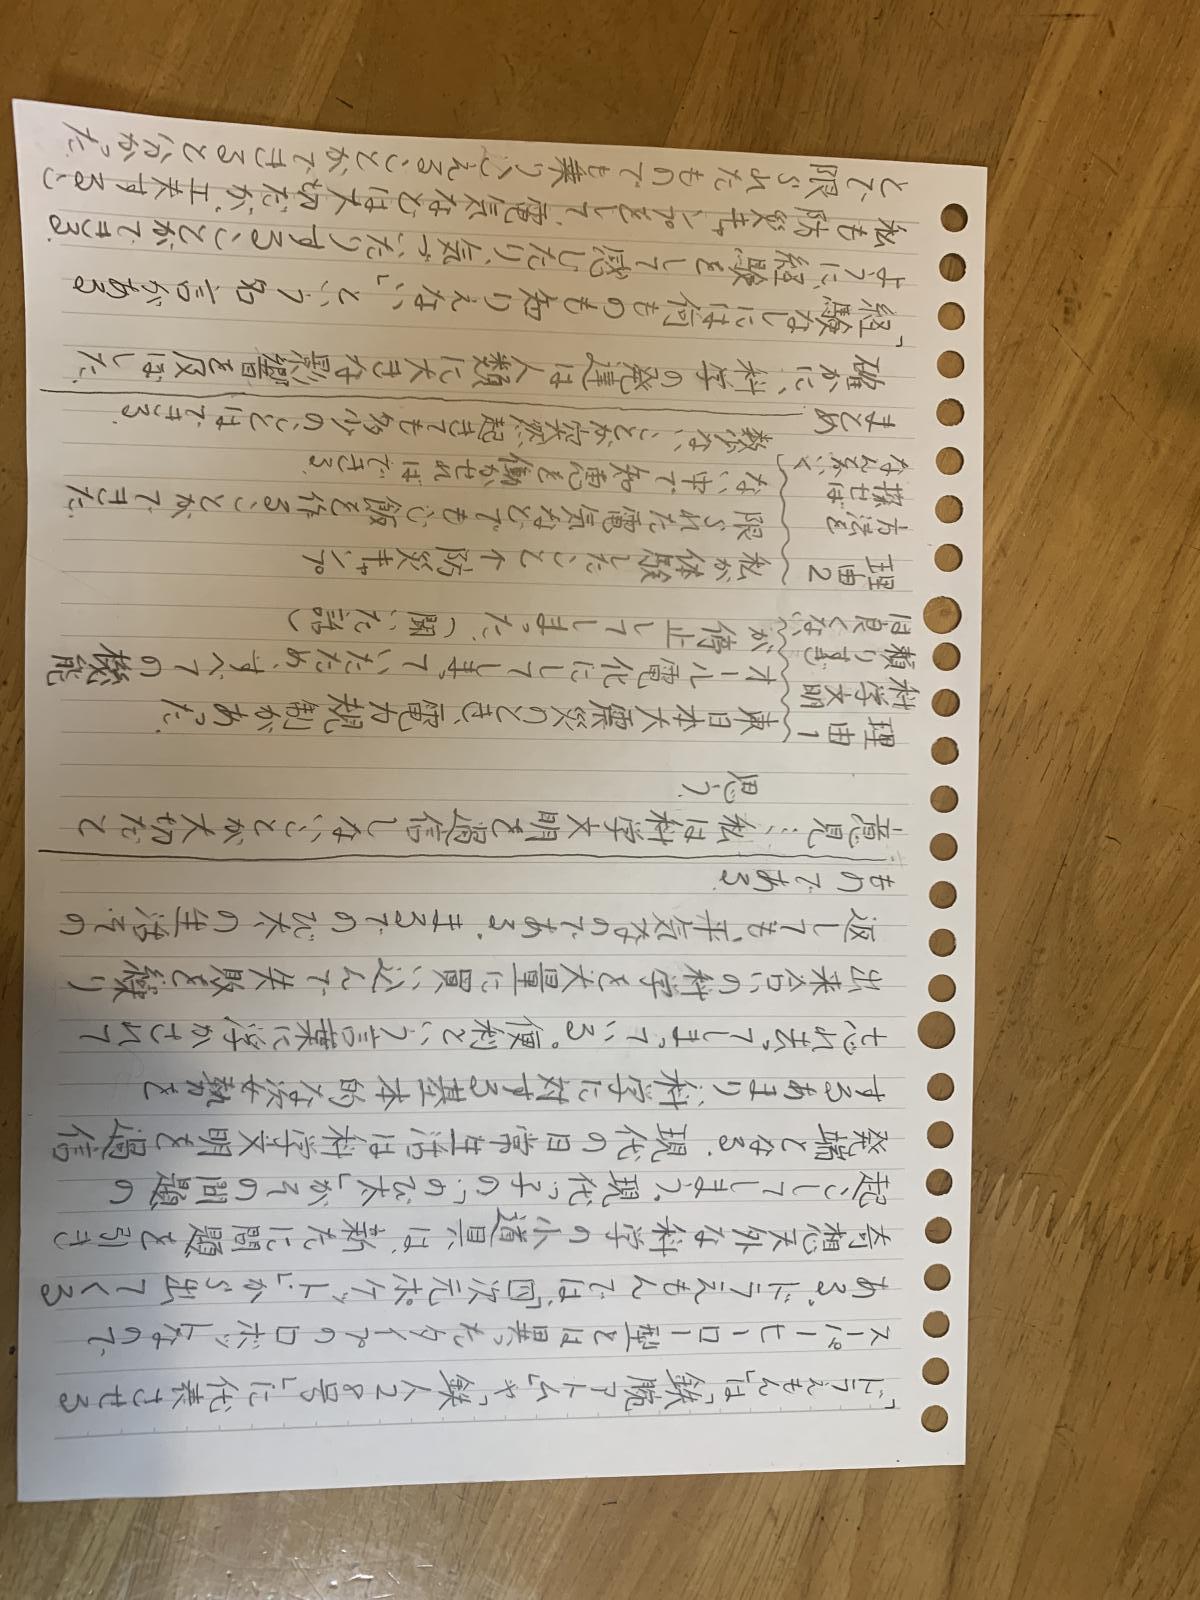 「ドラえもん」は「鉄腕アトム」や「鉄人28号」に代表させる
スーパーヒーロー型とは異ったタイプのロボットなので
ある。ドラえもんでは、「四次元ポケット」から出てくる
奇想天外な科学の小道具は、新たに問題を引き
起こしてしまう。現代っ子の「のび太」がその問題の
発端となる。現代の日常生活は科学文明を過信
するあまり、科学に対する基本的な姿勢を
忘れ去ってしまっている。便利という言葉に浮かされて
出来合いの科学を大量に買い込んで失敗を繰り
返しても、平気なのである。まるでのび太の生活その
ものである。
意見…私は科学文明を過信しないことが大切だと
思う。
理由1
東日本大震災のとき、電力規制があった。
科学文明
オール電化にしてしまっていたため、すべての機能
頼りすぎ
が停止してしまった(聞いた話)
は良くない
理由2
私が体験したこと↑防災キャンプ
方法を
限られた電気などでも、ご飯を作ることができた
探せば
ない中で知恵を働かせればできる。
なんとか
数少ないことが突然、起きても多少のことはできる。
まとめ
確かに、科学の発達は人類に大きな影響を及ぼした。
「経験なしには何ものも知りえない」という名言がある
ように経験をして感じたり、気づいたりすることができる。
私も防災キャンプをして、電気などは大切だが、工夫するこ
とで限られたものでも乗りこえることができると分かった。